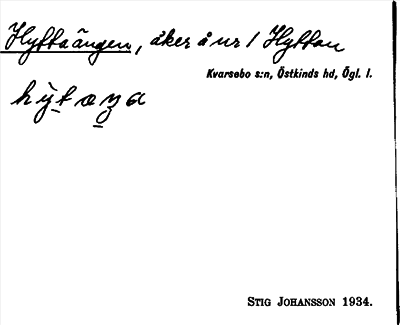 Hyttaängen, åker å nr 1 Hyttan
Kvarsebo s:n, Östkinds hd, Ögl. l.
hy̤t æŋa
Stig Johansson 1934.